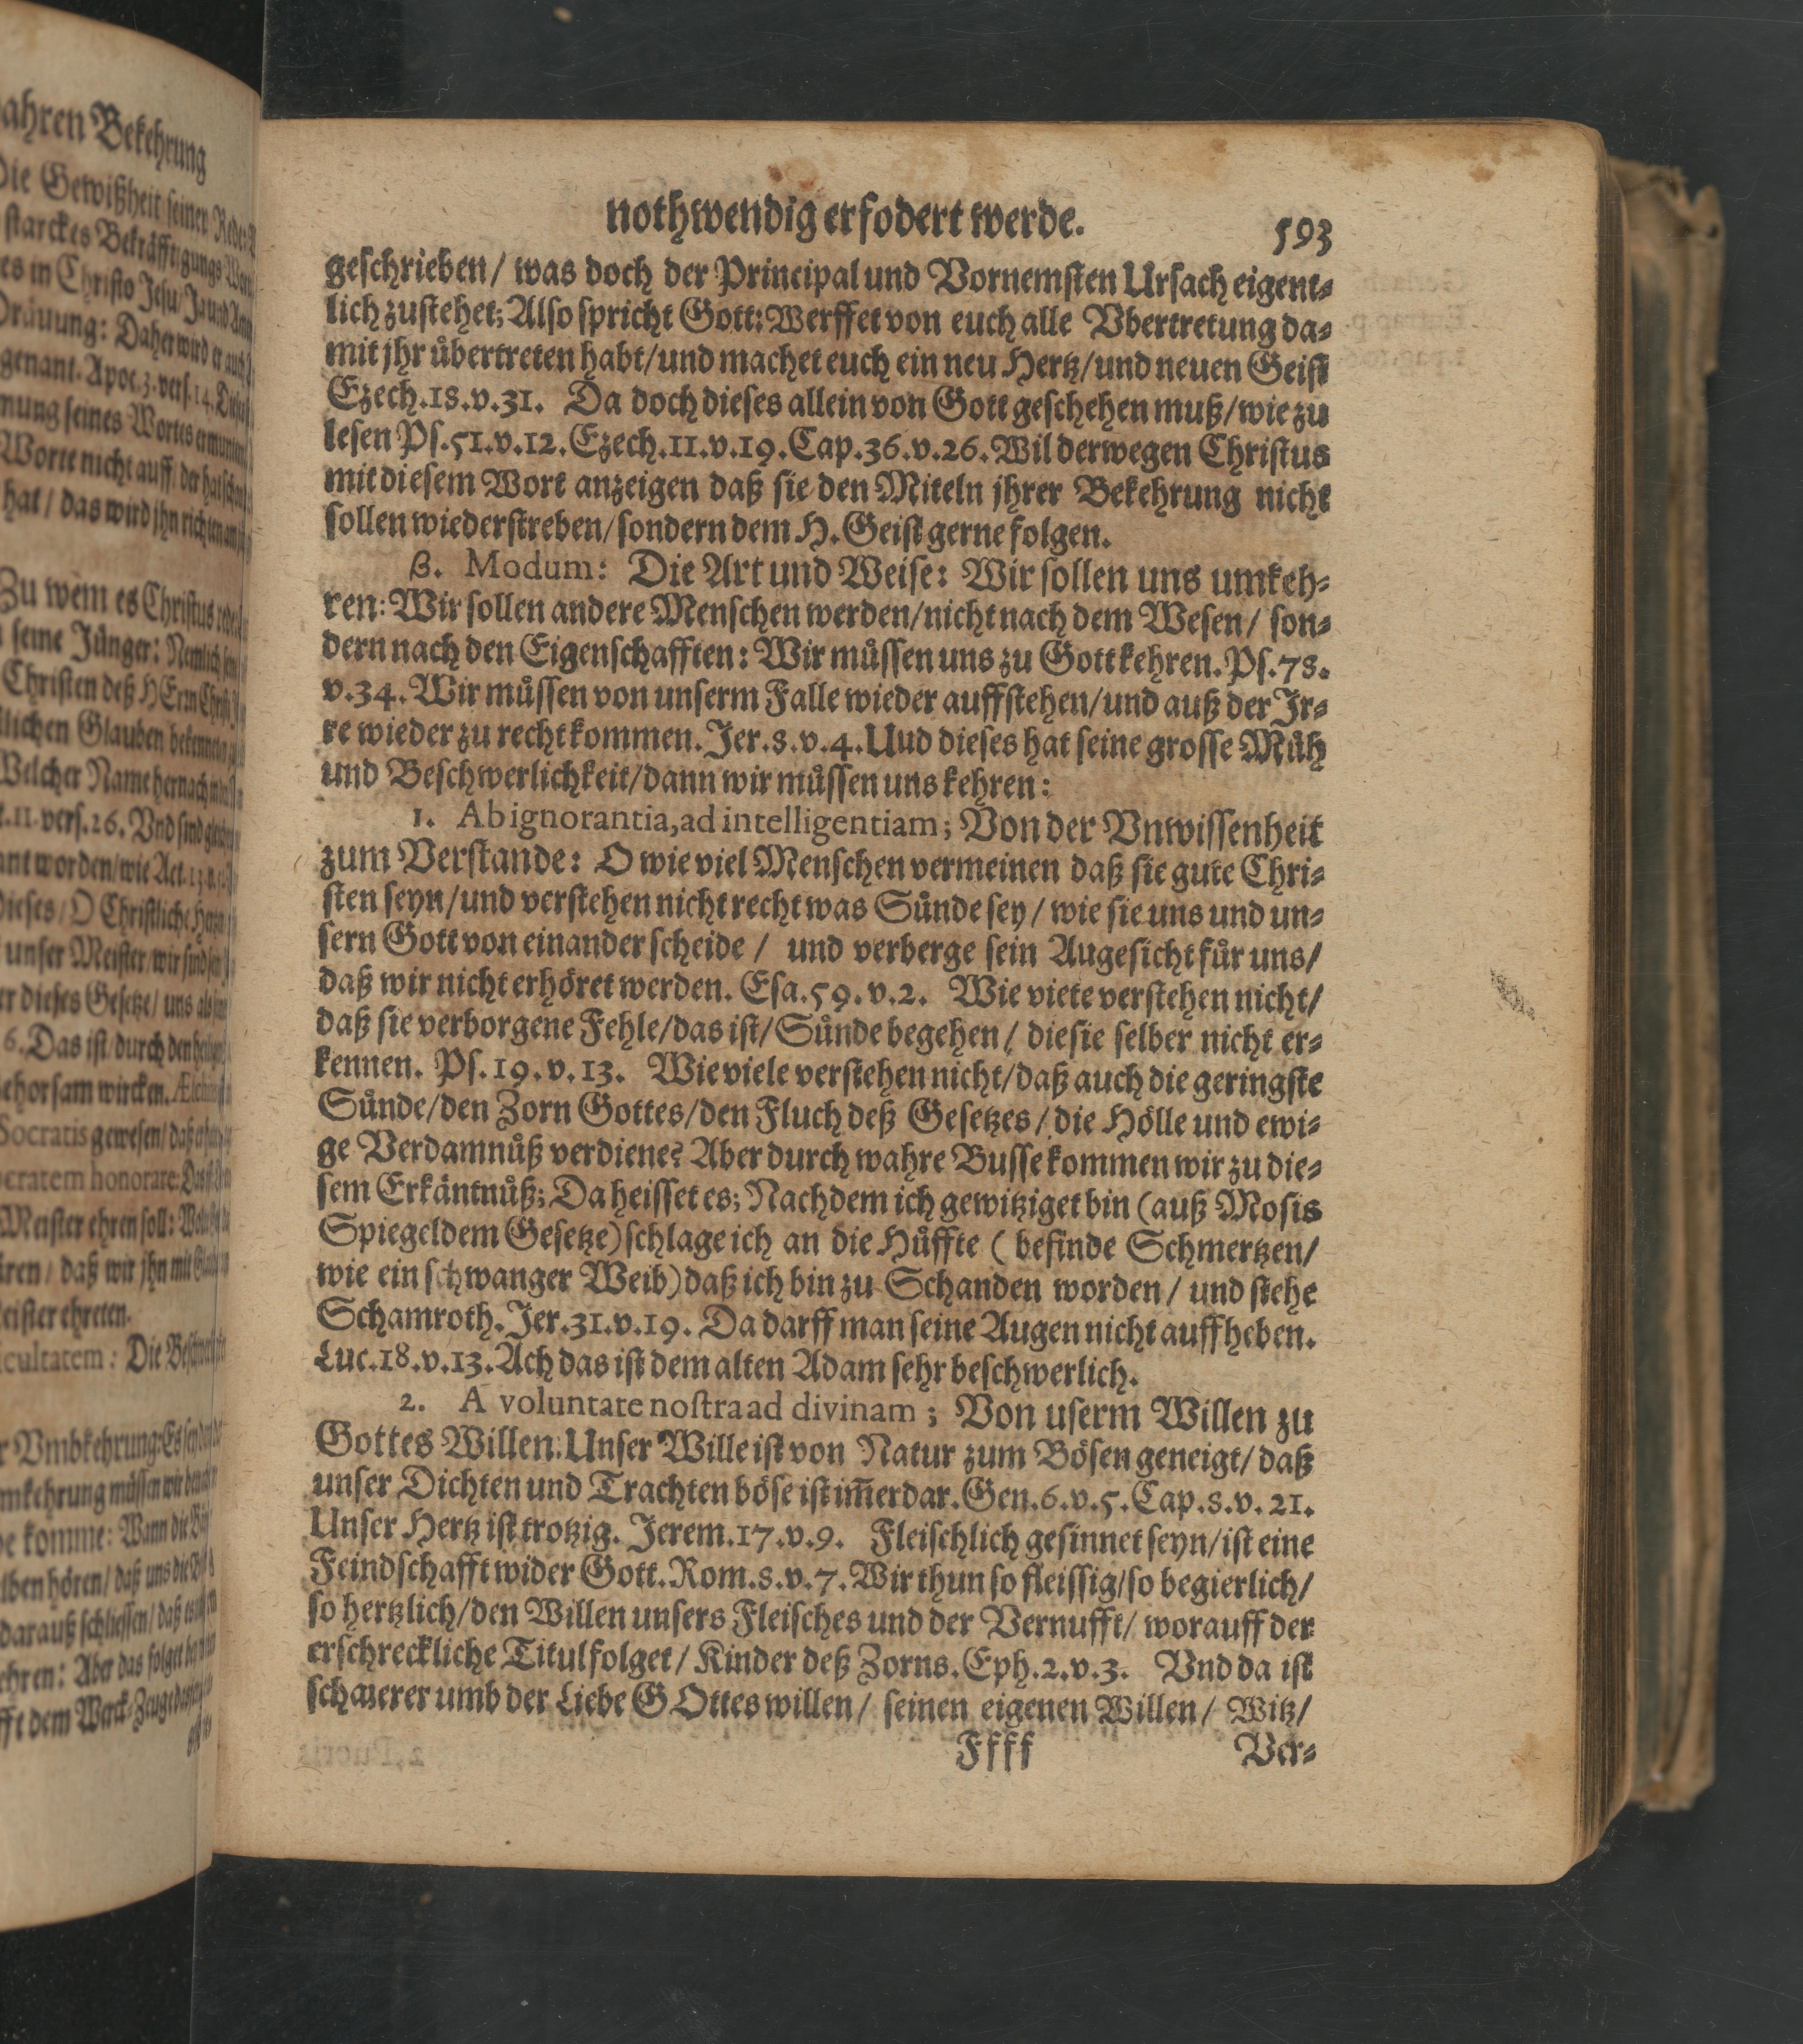 ahren Bekehrung
Die Gewißheit seiner Rede
starckes Bekräfftigungs
es in Christo Jesu/ Ja und Amen
Dräuung: Daher wird er auch
genant. Apoc. 3. vers. 14.
nung seines Wortes
Worte nicht auff/
hat/ das wird jhn richten
Zu wem es Christus rede
seine Jünger: Nemlich
Christen deß HErrn Christi
lichen Glauben bekennen
Welcher Name hernach
11. vers. 26. Vnd sind
ant worden/ wie Act.
dieses/ O Christliche
unser Meister/ wir sind
er dieses Gesetze/ uns als
6. Das ist/ durch den
ehorsam wircken.
Socratis gewesen/ daß
cratem honorare: Das
Meister ehren soll:
ren/ daß wir jhn mit
eister ehreten.
cultatem: Die
r Vmbkehrung: Es sey
mkehrung müssen wir
e komme: Wann die
lben hören/ daß uns die
darauß schliessen/ daß
ehren: Aber das folget
fft dem Werck-Zeuge
nothwendig erfodert werde. 593
geschrieben/ was doch der Principal und Vornemsten Ursach eigent-
lich zustehet; Also spricht Gott: Werffet von euch alle Vbertretung da-
mit jhr übertreten habt/ und machet euch ein neu Hertz/ und neuen Geist
Ezech. 18. v. 31. Da doch dieses allein von Gott geschehen muß/ wie zu
lesen Ps. 51. v. 12. Ezech. 11. v. 19. Cap. 36. v. 26. Wil derwegen Christus
mit diesem Wort anzeigen daß sie den Miteln jhrer Bekehrung nicht
sollen wiederstreben/ sondern dem H. Geist gerne folgen.
ß. Modum: Die Art und Weise: Wir sollen uns umkeh-
ren: Wir sollen andere Menschen werden/ nicht nach dem Wesen/ son-
dern nach den Eigenschafften: Wir müssen uns zu Gott kehren. Ps. 78.
v. 34. Wir müssen von unserm Falle wieder auffstehen/ und auß der Jr-
re wieder zu recht kommen. Jer. 8. v. 4. Uud dieses hat seine grosse Müh
und Beschwerlichkeit/ dann wir müssen uns kehren:
1. Ab ignorantia, ad intelligentiam; Von der Vnwissenheit
zum Verstande: O wie viel Menschen vermeinen daß sie gute Chri-
sten seyn/ und verstehen nicht recht was Sünde sey/ wie sie uns und un-
sern Gott von einander scheide/ und verberge sein Augesicht für uns/
daß wir nicht erhöret werden. Esa. 59. v. 2. Wie viete verstehen nicht/
daß sie verborgene Fehle/ das ist/ Sünde begehen/ die sie selber nicht er-
kennen. Ps. 19. v. 13. Wie viele verstehen nicht/ daß auch die geringste
Sünde/ den Zorn Gottes/ den Fluch deß Gesetzes/ die Hölle und ewi-
ge Verdamnüß verdiene? Aber durch wahre Busse kommen wir zu die-
sem Erkäntnüß; Da heisset es; Nachdem ich gewitziget bin (auß Mosis
Spiegel dem Gesetze) schlage ich an die Hüffte ( befinde Schmertzen/
wie ein schwanger Weib) daß ich bin zu Schanden worden/ und stehe
Schamroth. Jer. 31. v. 19. Da darff man seine Augen nicht auffheben.
Luc. 18. v. 13. Ach das ist dem alten Adam sehr beschwerlich.
2. A voluntate nostra ad divinam; Von userm Willen zu
Gottes Willen. Unser Wille ist von Natur zum Bösen geneigt/ daß
unser Dichten und Trachten böse ist im̃erdar. Gen. 6. v. 5. Cap. 8. v. 21.
Unser Hertz ist trotzig. Jerem. 17. v. 9. Fleischlich gesinnet seyn/ ist eine
Feindschafft wider Gott. Rom. 8. v. 7. Wir thun so fleissig/ so begierlich/
so hertzlich/ den Willen unsers Fleisches und der Vernufft/ worauff der
erschreckliche Titul folget/ Kinder deß Zorns. Eph. 2. v. 3. Vnd da ist
umb der Liebe GOttes willen/ seinen eigenen Willen/ Witz/
Ffff Ver-